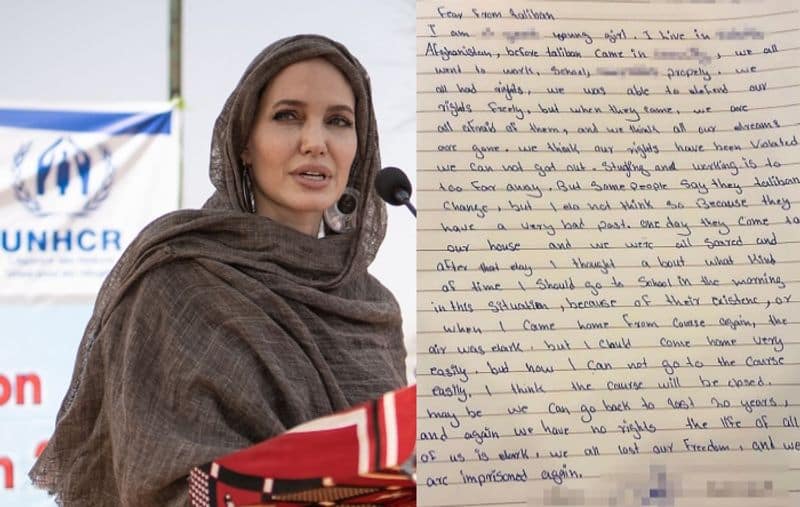 UNHCR
on
n 2
Fear From Taliban
I am young girl. I live in
Afghanistan, before taliban came in , we all
went to work, school, propely. we
all had rights, we was able to defend our
rights freely. but when they came, we are
all afraid of them, and we think all our dreams
are gone. we think our rights have been violated
we can not got out. Studing and working is to
too far away. But some people say they taliban
change, but I do not think so Because they
have a very bad past. one day they come to
our house and we were all scared and
after that day I thought a bout what kind
of time I should go to school in the morning
in this situation, because of their existenc, or
when I came home from course again, the
air was dark, but I could come home very
easily, but now I can not go to the course
easily, I think the course will be closed.
may be we can go back to last 20 years,
and again we have no rights the life of all
of us is dark, we all lost our freedom, and we
are imprisoned again.